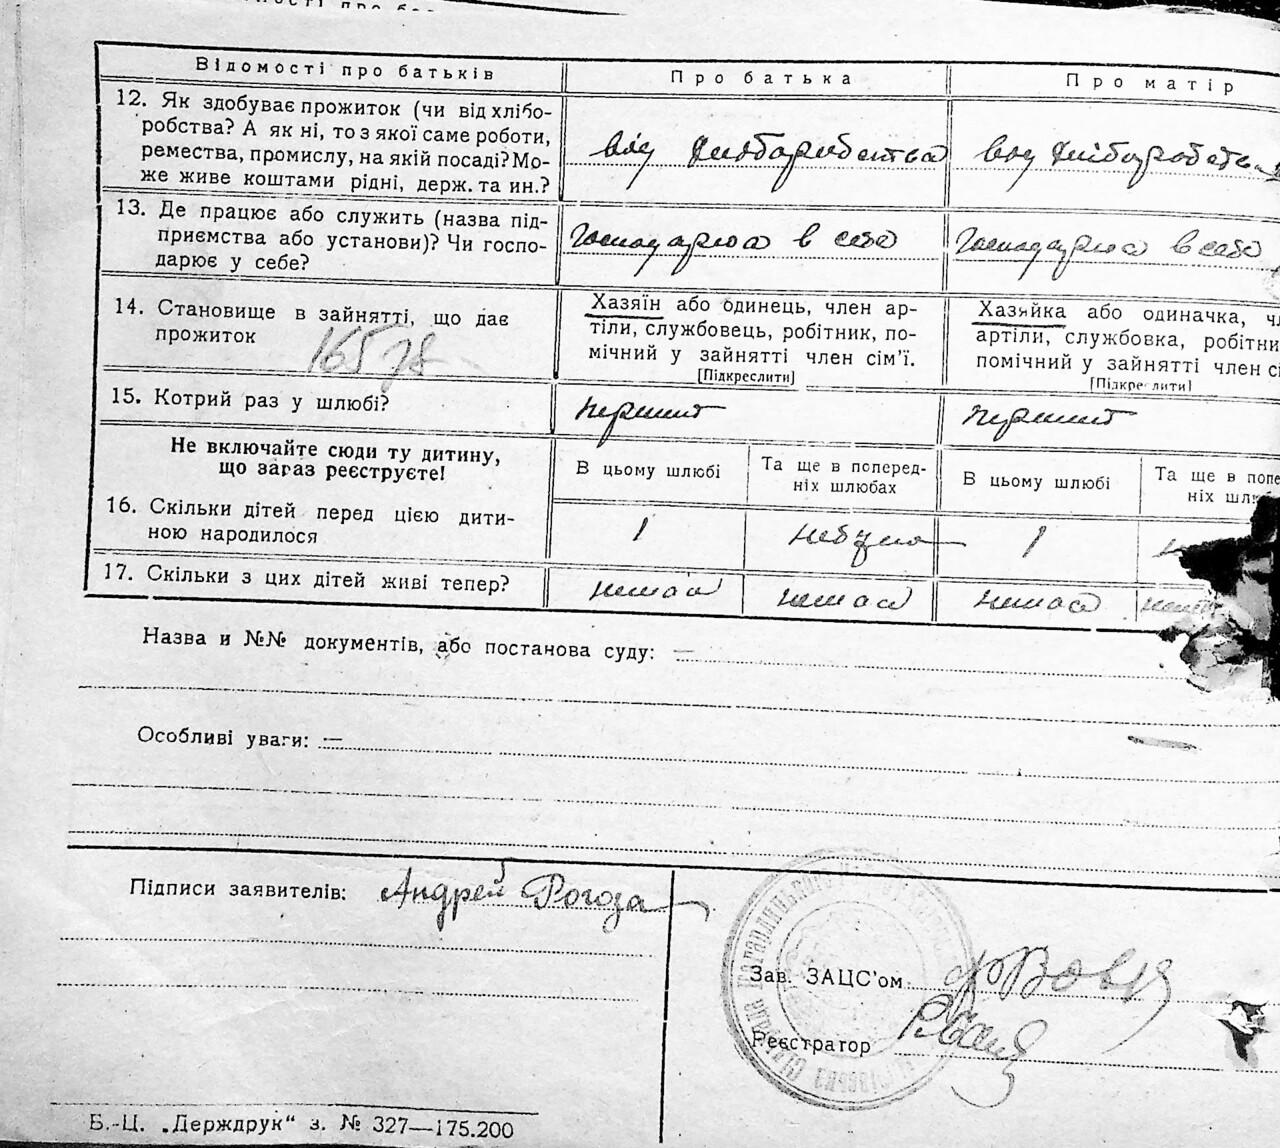 Відомості про батьків
Про батька
Про матір
12. Як здобуває прожиток (чи від хлібо-
робства? А як ні, то з якої саме роботи,
ремества, промислу, на якій посаді? Мо-
же живе коштами рідні, держ. та ин.?
від хліборобства
від хліборобства
13. Де працює або служить (назва під-
приємства або установи)? Чи госпо-
дарює у себе?
Господарює в себе
Господарює в себе
14. Становище в зайнятті, що дає
прожиток
Хазяїн або одинець, член ар-
тіли, службовець, робітник, по-
мічний у зайнятті член сім'ї.
[Підкреслити]
Хазяйка або одиначка, чл
артіли, службовка, робітни
помічний у зайнятті член сі
[Підкреслити]
15. Котрий раз у шлюбі?
перший
перший
Не включайте сюди ту дитину,
що зараз реєструєте!
В цьому шлюбі
Та ще в поперед-
ніх шлюбах
В цьому шлюбі
Та ще в попе
ніх шлю
16. Скільки дітей перед цією дити-
ною народилося
1
небуло
1
17. Скільки з цих дітей живі тепер?
немає
немає
немає
Назва и №№ документів, або постанова суду: —
Особливі уваги: —
Підписи заявителів: Андрей Рогоза
Зав. ЗАЦС'ом
Реєстратор
Б.-Ц. „Держдрук“ з. № 327—175.200